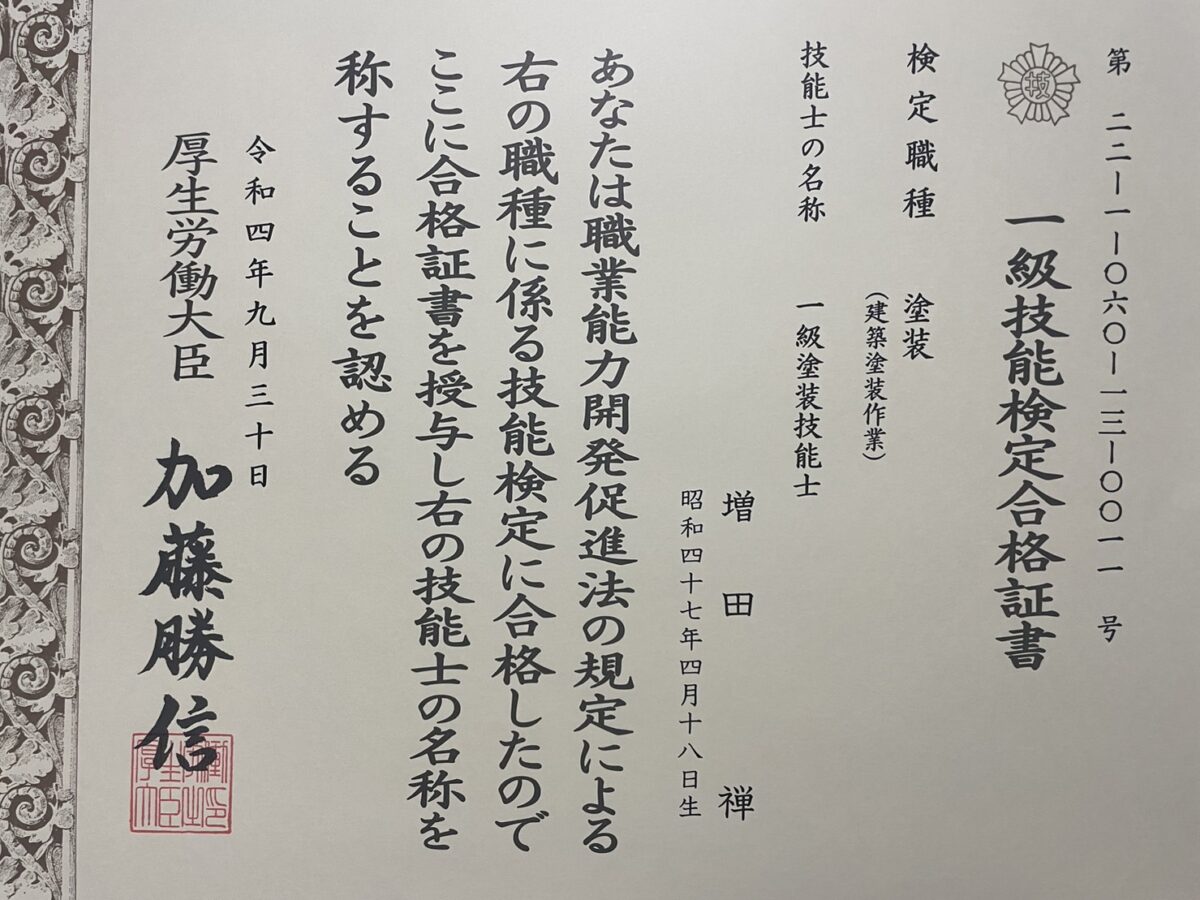 第 二二―一―〇六〇―一三―〇〇一一 号
技
一級技能検定合格証書
検定職種 塗装
(建築塗装作業)
技能士の名称 一級塗装技能士
増田 禅
昭和四十七年四月十八日生
あなたは職業能力開発促進法の規定による
右の職種に係る技能検定に合格したので
ここに合格証書を授与し右の技能士の名称を
称することを認める
令和四年九月三十日
厚生労働大臣 加藤勝信
厚生労働大臣之印